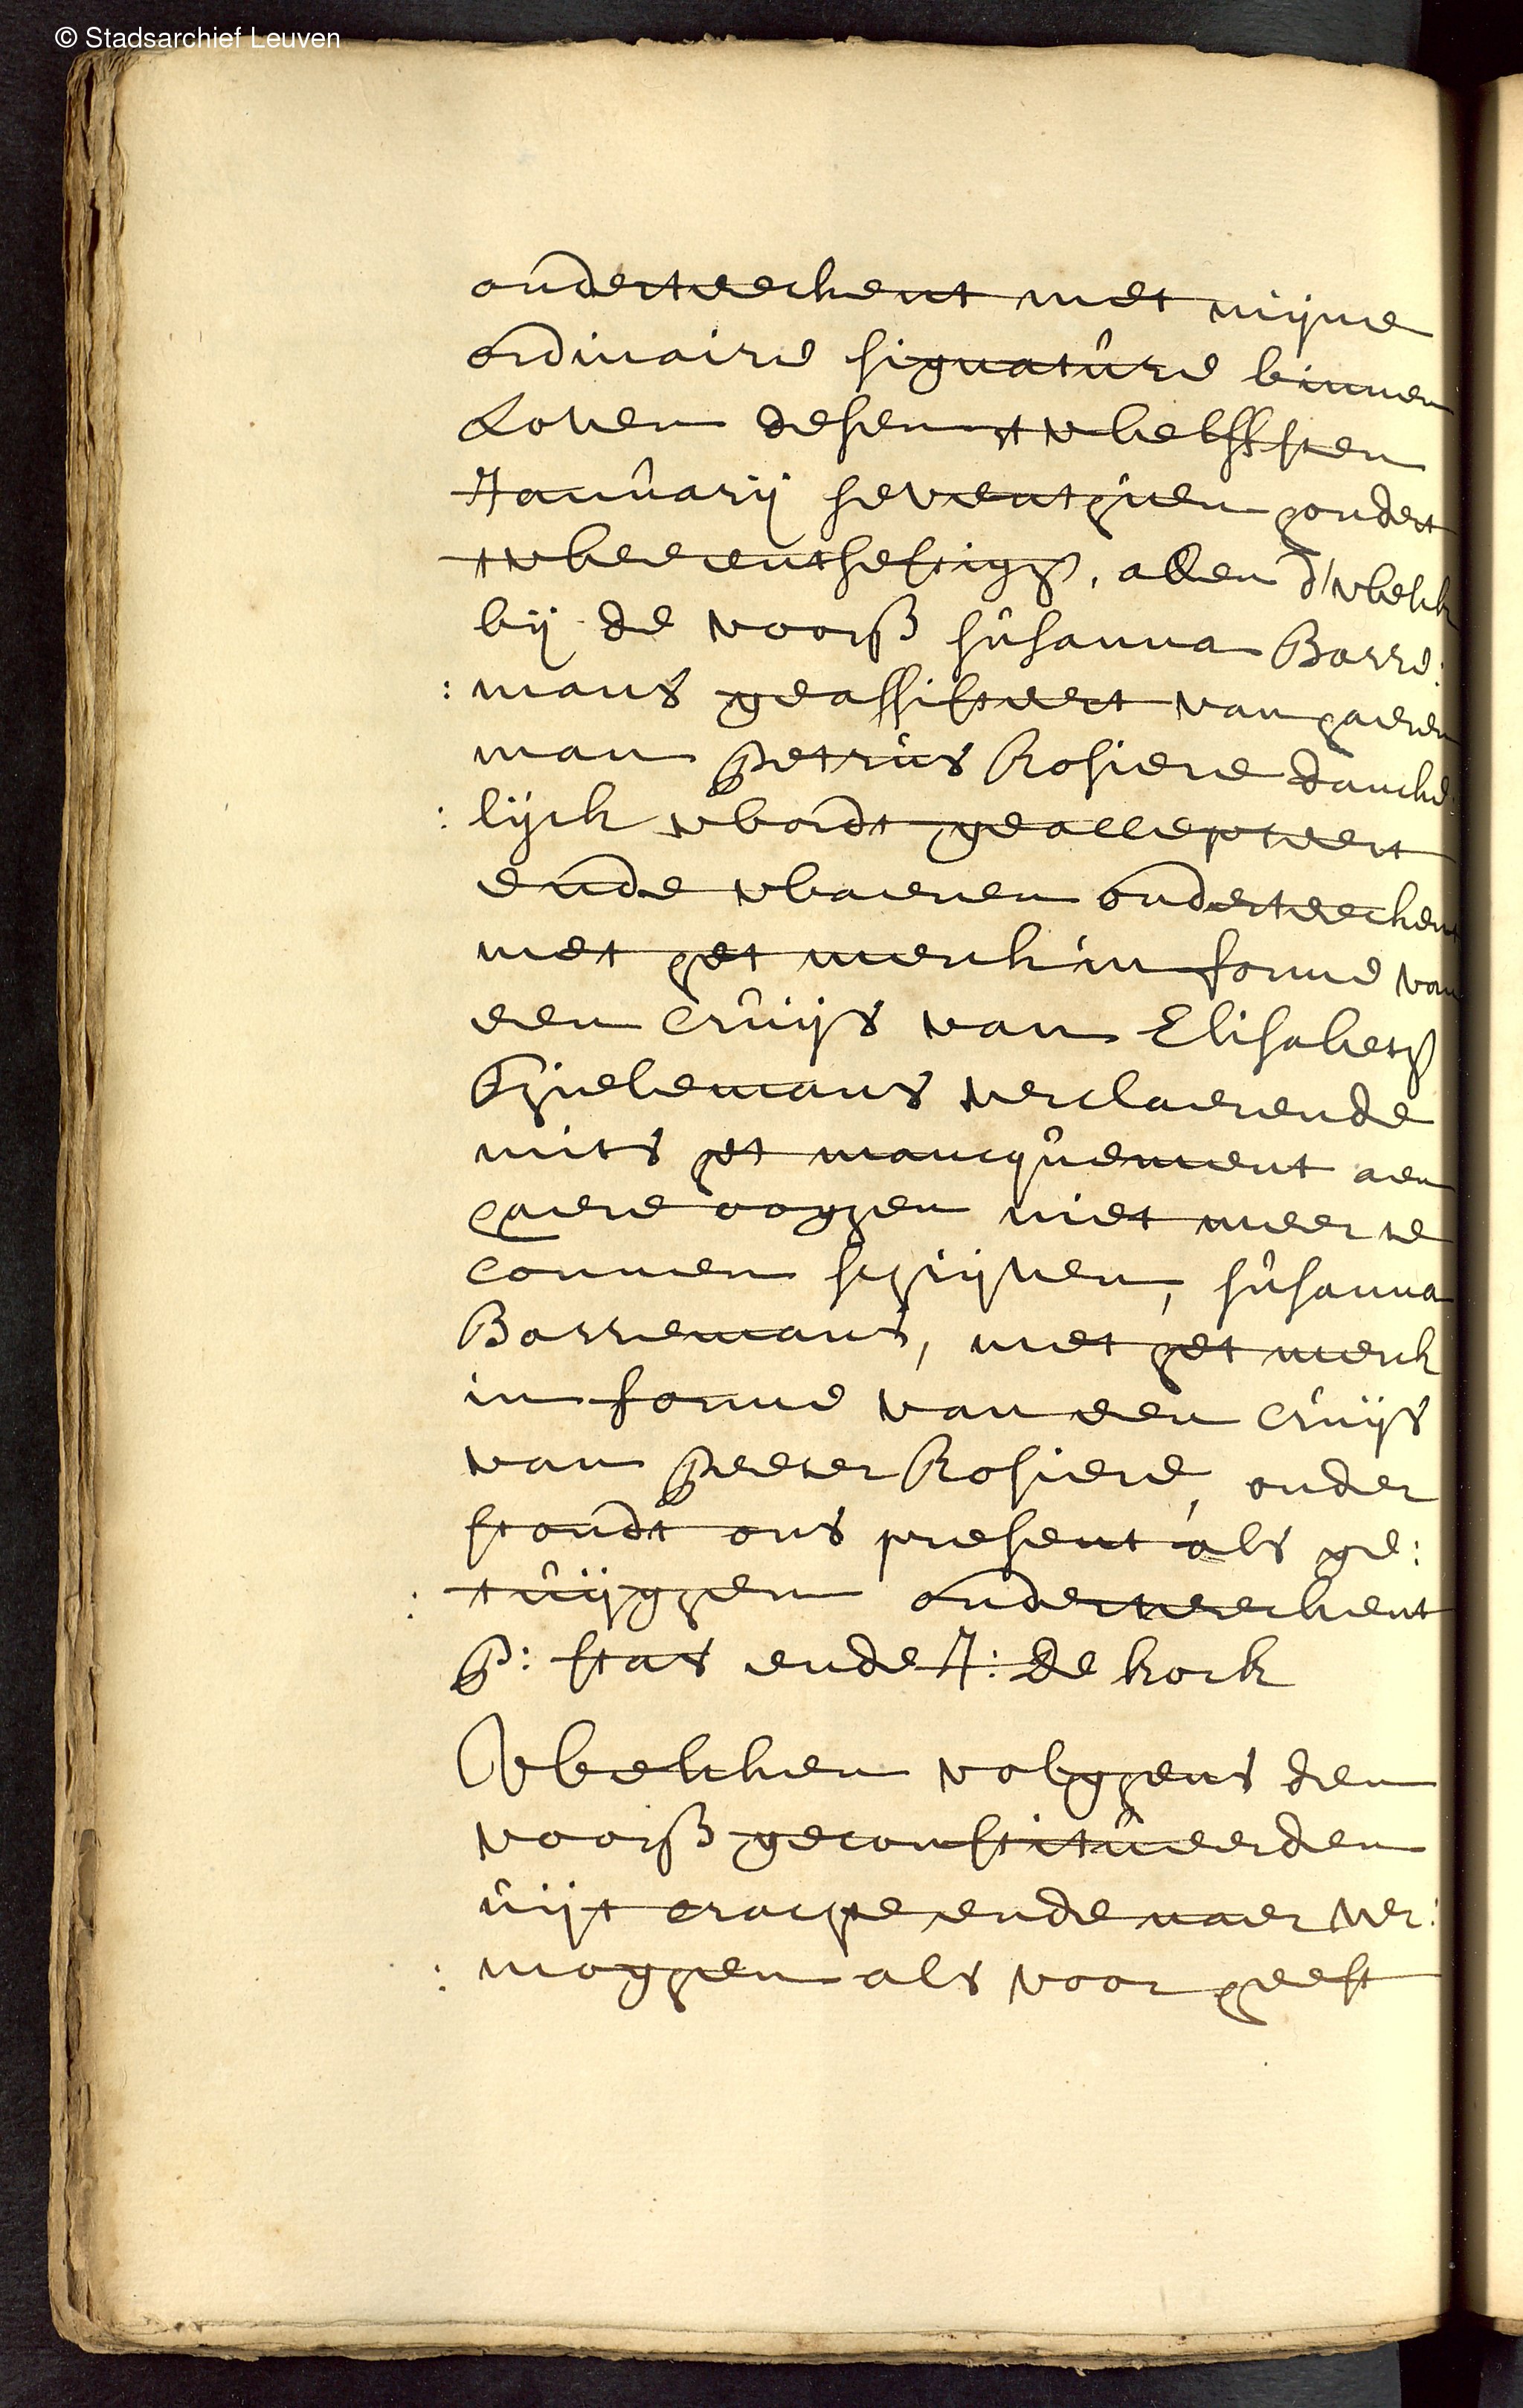 © Stadsarchief Leuven
onderteeckent met mijne
ordinaire signatûre binnen
Loven desen twelffsten
Janûarij seventhien hondert
tweeentsestigh, allen d'welck
bij de voorß sûsanna Borre:
:mans geassisteert van haeren
man Petrus Rosiere danckе:
:lijck wordt geaccepteert
ende waeren onderteeckent
met het merck in forme van
een crûijs van Elisabeth
Thielemans verclaerende
mits het mancqûement aen
haere ooghen niet meer te
connen schrijven, sûsanna
Borremans, met het merck
in forme van een crûijs
van Peeter Rosiere, onder
stondt ons present als ge:
:tûijghen onderteeckent
P: stas ende J: de kock
Welcken volghens den
voorß geconstitûeerden
ûijt crachte ende naer ver:
:moghen als voor heeft